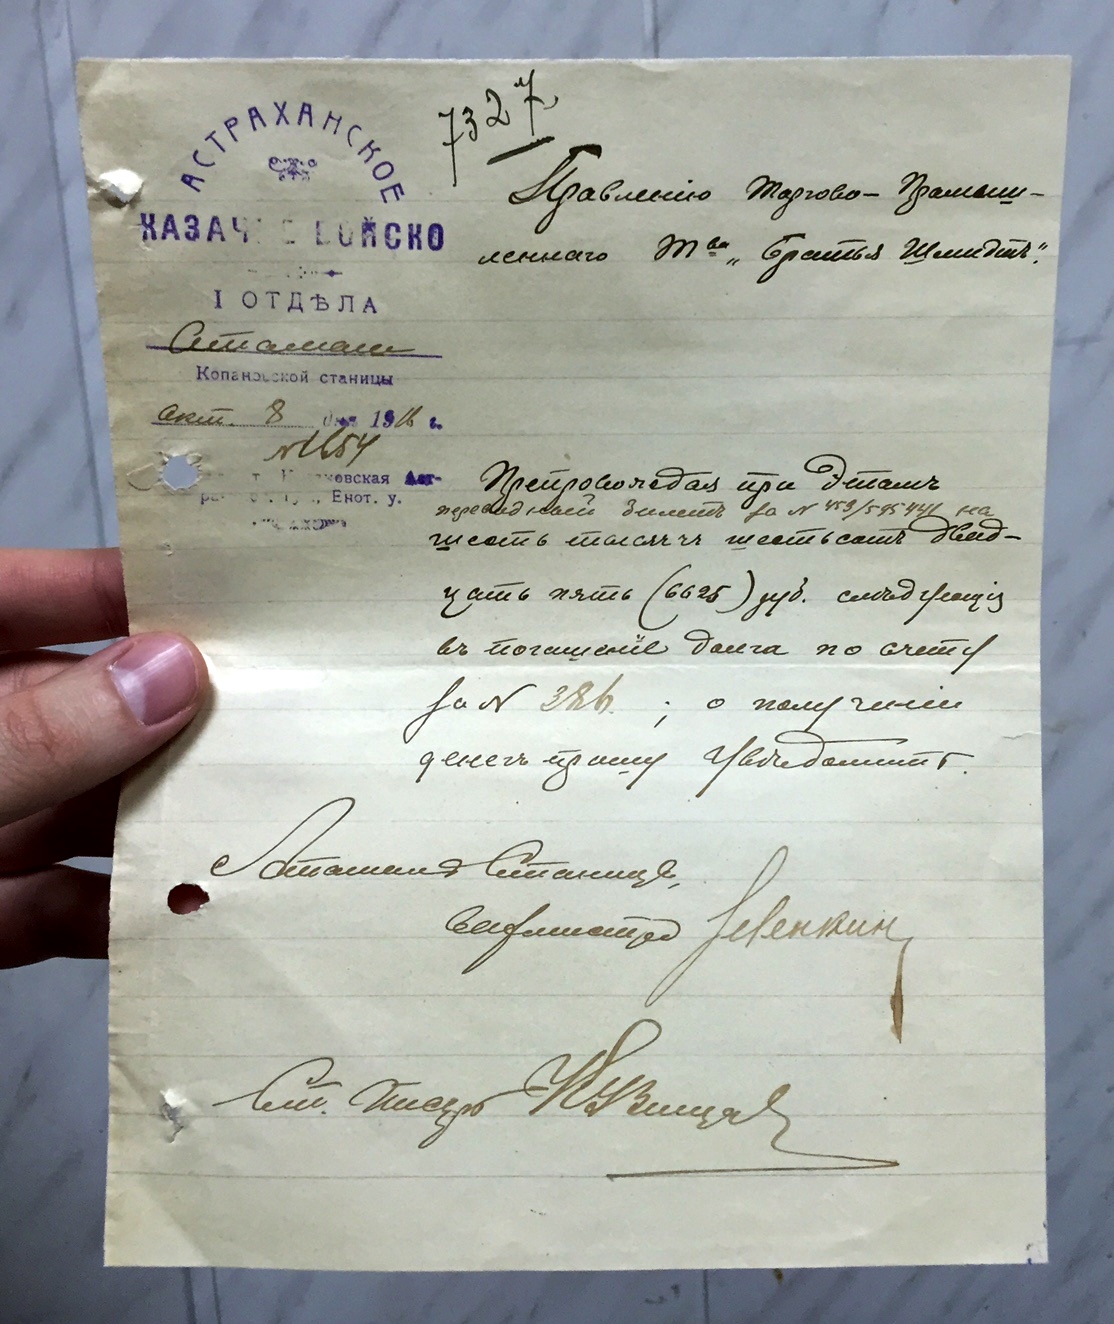 7327
АСТРАХАНСКОЕ
КАЗАЧЬЕ ВОЙСКО
I ОТДѢЛА
Атаманъ
Копановской станицы
окт. 8 дня 1916 г.
№ 1654
Копановская Аст-
Енот. у.
Правленію Торгово-Промыш-
леннаго Тва „Братья Шмидтъ".
Препровождая при этомъ
переводный билетъ за № 453/595441 на
шесть тысячъ шестьсотъ двад-
цать пять (6625) руб. слѣдующіе
въ погашеніе долга по счету
за № 386. ; о полученіи
денегъ прошу увѣдомить.
Атаманъ Станицы,
Ст. Писарь